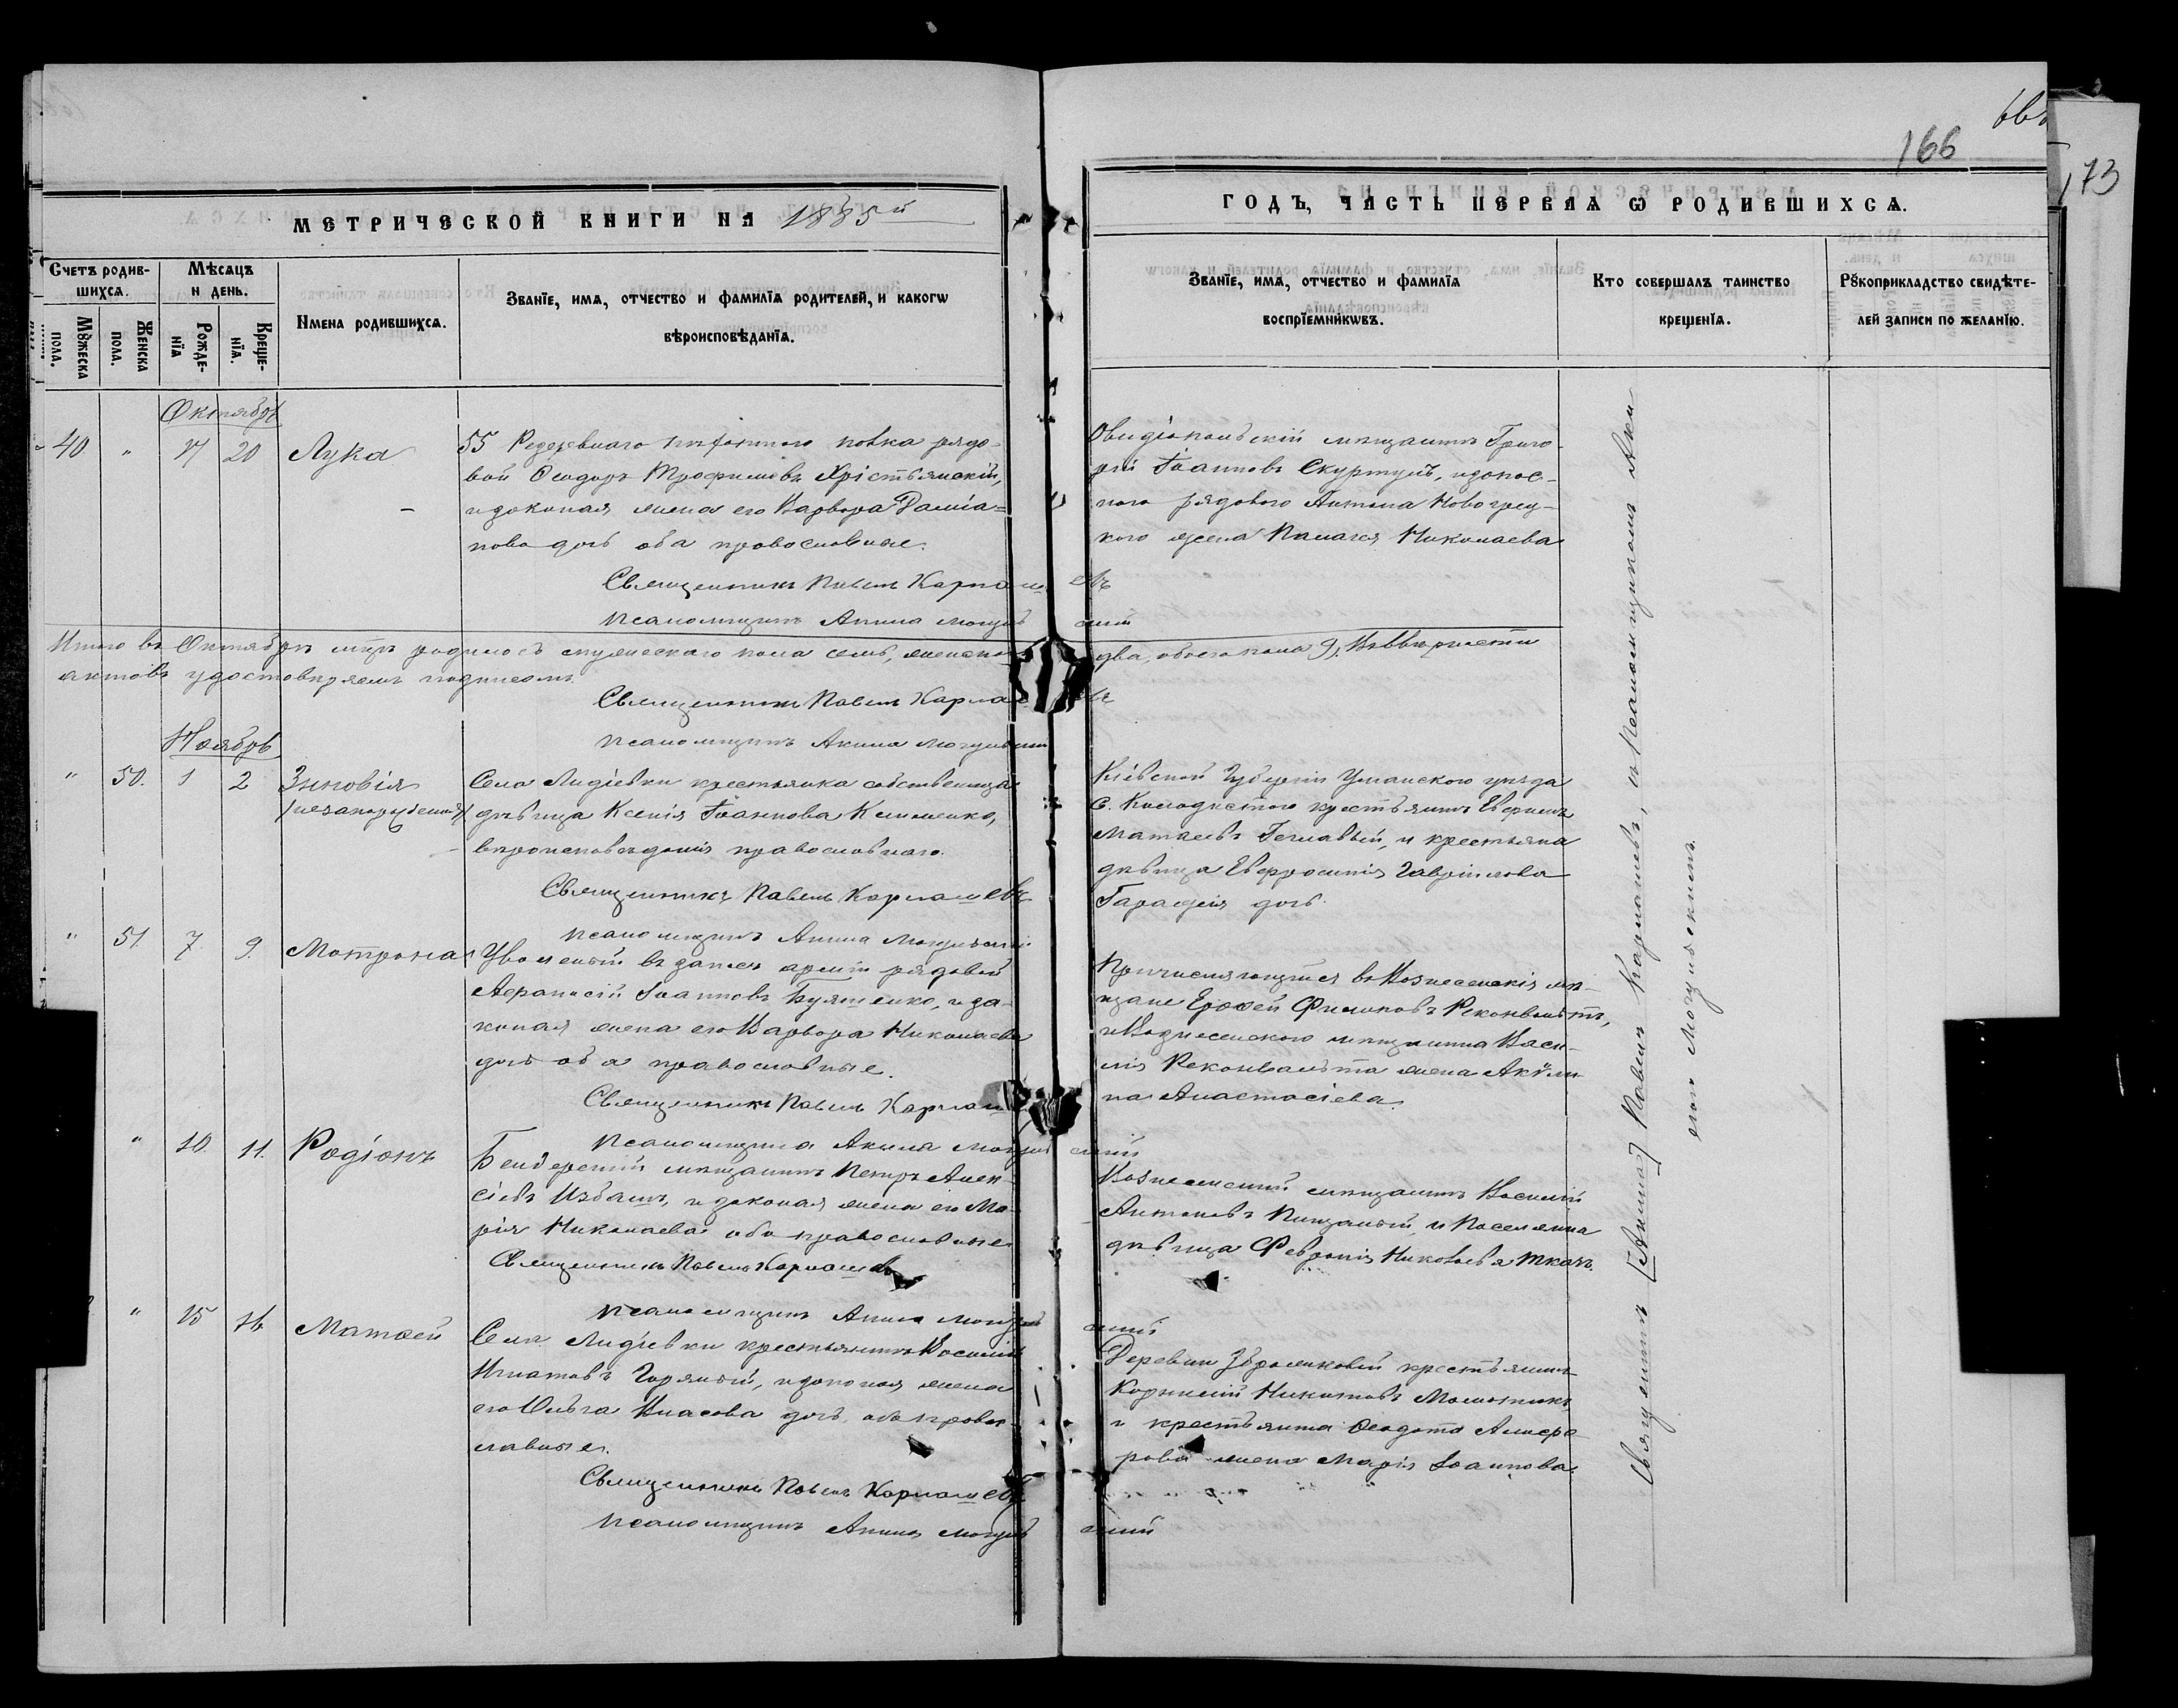 166
173
МЕТРИЧЕСКОЙ КНИГИ НА 1885й
ГОДЪ, ЧАСТЬ ПЕРВАЯ Ѡ РОДИВШИХСѦ.
Счетъ родив-
шихсѧ.
Мѣсѧцъ
и день.
Мꙋжеска
пола.
Женска
пола.
Рожде-
нїѧ
Креще-
нїѧ.
Имена родившихсѧ.
Званїе, имѧ, отчество и фамилїѧ родителей, и какогѡ
вѣроисповѣданїѧ.
Званїе, имѧ, отчество и фамилїѧ
воспрїемникѡвъ.
Кто совершалъ таинство
крещенїѧ.
Рꙋкоприкладство свидѣте-
лей записи по желанїю.
Октябрь
40 " 17 20 Лука
55 Резервнаго пѣхотнаго полка рядо-
вой Ѳеодоръ Трофимовъ Христьянскій,
и законая жена его Варвара Даміа-
нова дочь оба православные.
Священникъ Павелъ Карпашевъ
Псаломщикъ Акила Могульскій
Овидіопольскій мѣщанинъ Григо-
рій Іоанновъ Скуртулъ, и запас-
наго рядового Антона Новогрец-
кого жена Николаева
Итого въ Октябрѣ мцѣ родилось мужескаго пола семь, женскаго два, обоего пола 9. Въ вѣрности
актовъ удостовѣряемъ подписомъ.
Священникъ Павелъ Карпашевъ
Псаломщикъ Акила Могульскій
Ноябрь
" 50. 1 2 Зиновія
/незаконорожденная/
Села Лидіевки крестьянка собственница
дѣвица Ксенія Іоаннова Клименко,
вѣроисповѣданія православнаго.
Священникъ Павелъ Карпашевъ
Псаломщикъ Акила Могульскій
Кіевской Губерніи Уманского уѣзда
с. Колодистого крестьянинъ Ефремъ
Матѳеевъ и крестьянка
дѣвица Евфросинія Гавріилова
дочь.
" 51. 7. 9. Матрона
Уволеный въ запасъ арміи рядовой
Аѳанасій Іоанновъ и за-
коная жена его Варвара Николаева
дочь оба православные.
Священникъ Павелъ Карпашевъ
Псаломщикъ Акила Могульскій
Причисляющійся въ Вознесенскія мѣ-
щане Ерофей Филиповъ Реконвальтъ,
и Вознесенского мѣщанина Васи-
лія Реконвальта жена Акули-
на Анастасіева.
" 10. 11. Родіонъ
Бендерскій мѣщанинъ Петръ Алек-
сіевъ Избашъ, и законая жена его Ма-
рія Николаева оба православные
Священникъ Павелъ Карпашевъ
Псаломщикъ Акила Могульскій
Вознесенскій мѣщанинъ Василій
Антоновъ и Поселянка
дѣвица Февронія Николаева Ткачъ.
" 15 16 Матѳей
Села Лидіевки крестьянинъ Василій
Игнатовъ Горяный, и законая жена
его Ольга Власова дочь, оба право-
славные.
Священникъ Павелъ Карпашевъ
Псаломщикъ Акила Могульскій
Деревни крестьянинъ
Корнилій Никитовъ
и крестьянина Ѳеодота
жена Марія Іоаннова.
Священникъ [Акила] Павелъ Карпашевъ, съ Псаломщикомъ Аки-
лою Могульскимъ.